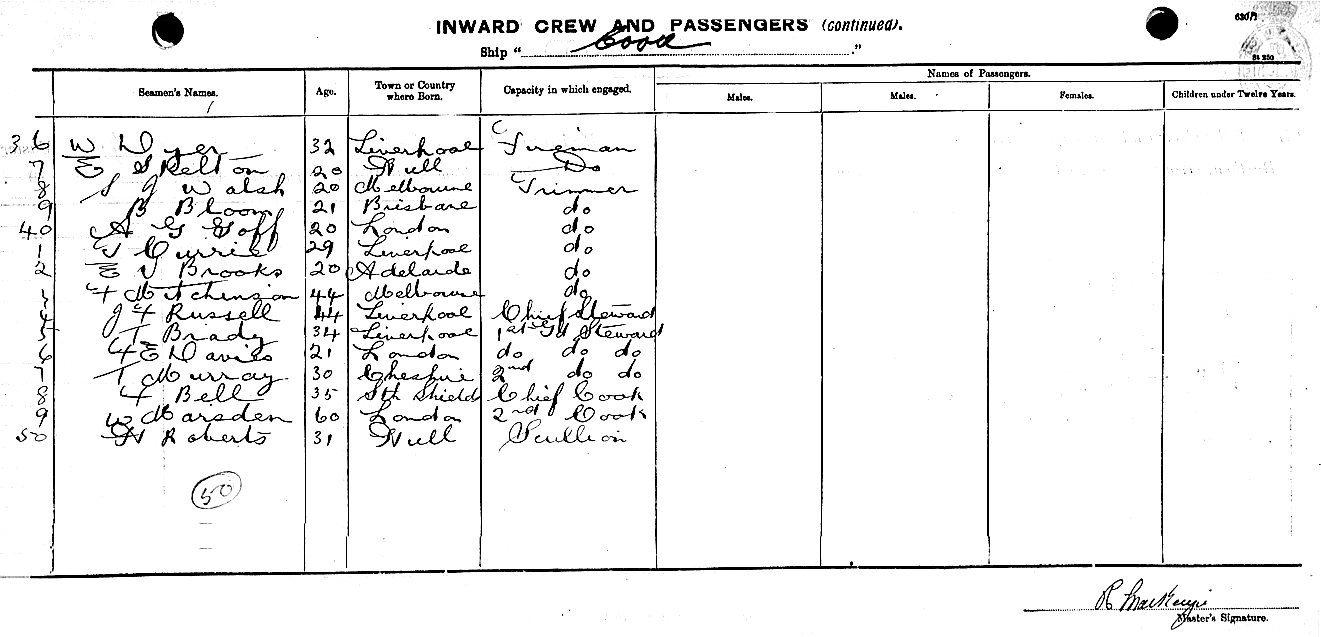 INWARD CREW AND PASSENGERS (continued).
630/1
Ship " Cooa ."
St 250
Seamen's Names. Age. Town or Country where Born. Capacity in which engaged. Names of Passengers.
Males. Males. Females. Children under Twelve Years.
36 W Dyer 32 Liverpool Fireman
7 E Skelton 20 Hull Do
8 S J Walsh 20 Melbourne Trimmer
9 B Bloom 21 Brisbane do
40 A G Goff 20 London do
1 T Currie 29 Liverpool do
2 E J Brooks 20 Adelaide do
3 F Mitchenson 44 Melbourne do
4 J F Russell 44 Liverpool Chief Steward
5 T Brady 34 Liverpool 1st Gd Steward
6 F E Davies 21 London do do do
7 T Murray 30 Cheshire 2nd do do
8 F Bell 35 Sth Shields Chief Cook
9 W Marsden 60 London 2nd Cook
50 H Roberts 31 Hull Scullion
50
R MacKenzie
Master's Signature.